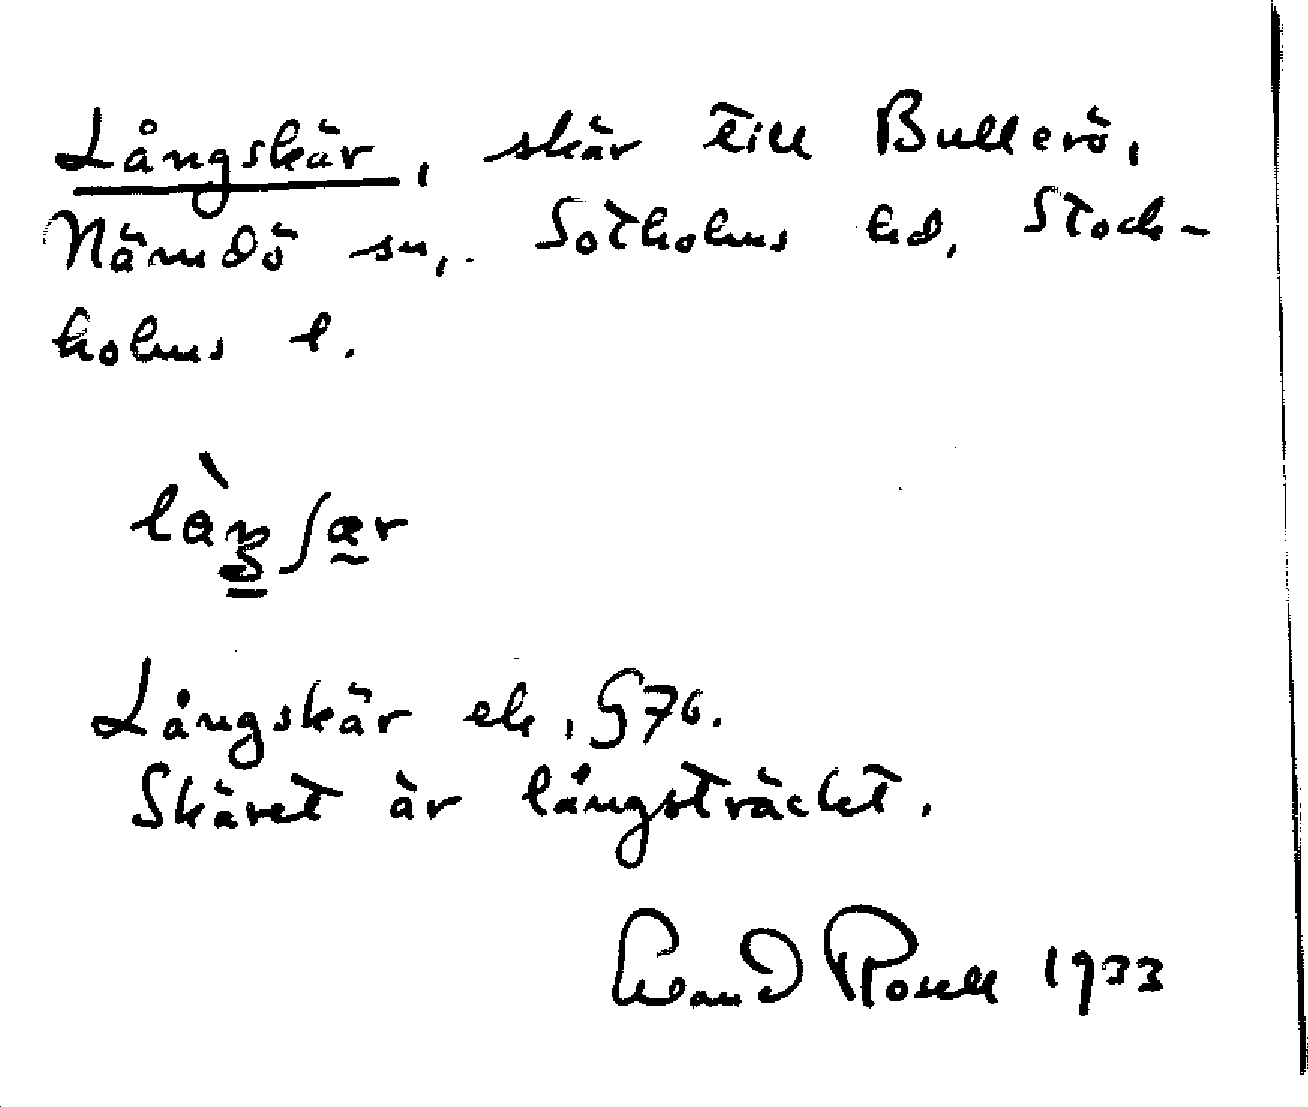 Långskär, skär till Bullerö,
Nämdö sn, Sotholms hd, Stock-
holms l.
Långskär ek, §76.
Skäret är långsträckt.
Rosell 1933